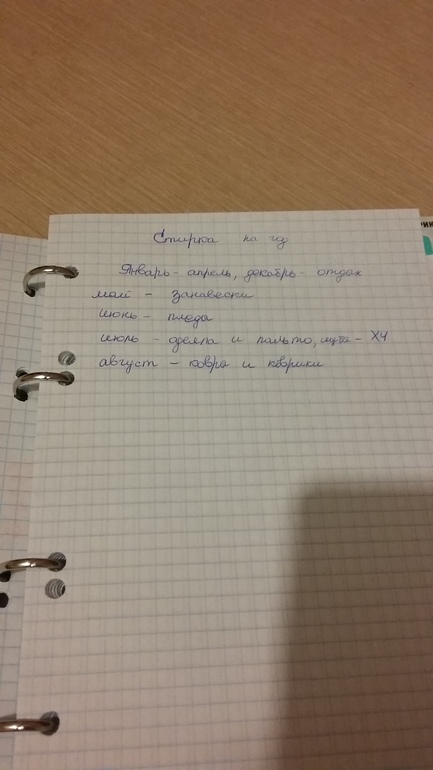 Стирка на год
Январь - апрель, декабрь - отдых
май - занавески
июнь - пледы
июль - одеяла и пальто, - ХЧ
август - ковры и коврики